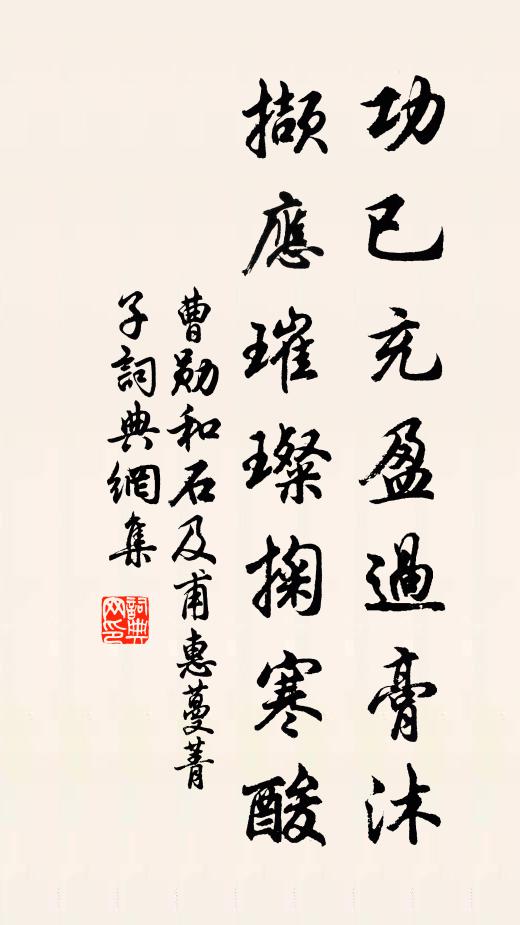 功已充盈過膏沐
擷應璀璨掬寒酸
曹勛和石及甫惠蔓菁
子詞典網集
詞典网印